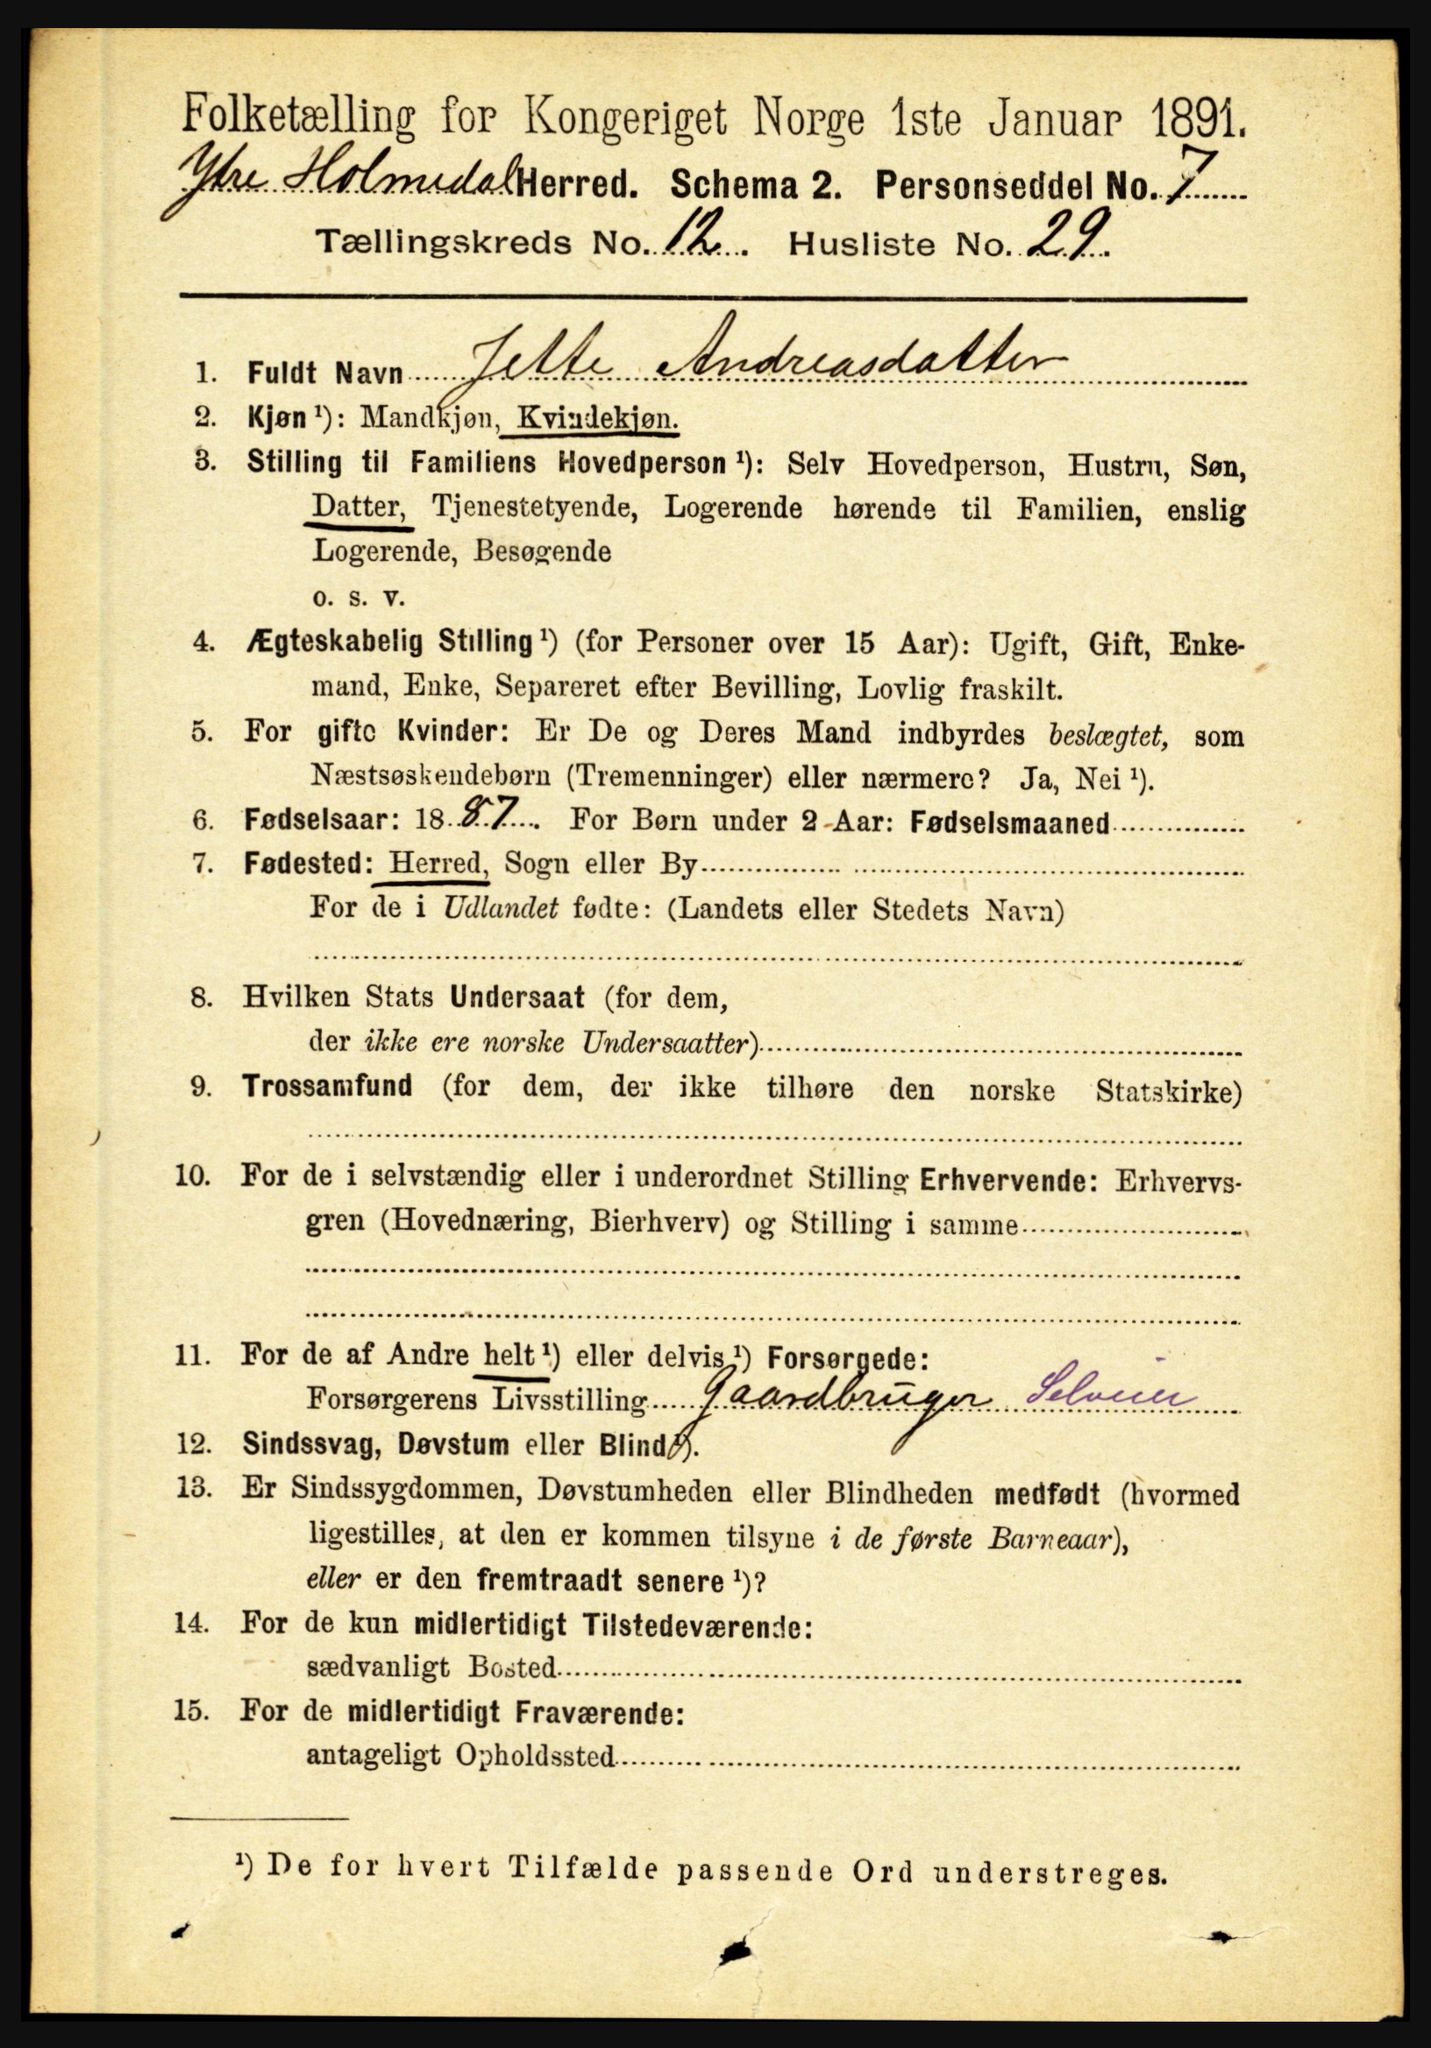 Folketælling for Kongeriget Norge 1ste Januar 1891.
Ytre Holmedal Herred. Schema 2. Personseddel No. 7
Tællingskreds No. 12. Husliste No. 29.
1. Fuldt Navn Jette Andreasdatter
2. Kjøn ¹): Mandkjøn, Kvindekjøn.
3. Stilling til Familiens Hovedperson ¹): Selv Hovedperson, Hustru, Søn,
Datter, Tjenestetyende, Logerende hørende til Familien, enslig
Logerende, Besøgende
o. s. v.
4. Ægteskabelig Stilling ¹) (for Personer over 15 Aar): Ugift, Gift, Enke-
mand, Enke, Separeret efter Bevilling, Lovlig fraskilt.
5. For gifte Kvinder: Er De og Deres Mand indbyrdes beslægtet, som
Næstsøskendebørn (Tremenninger) eller nærmere? Ja, Nei ¹).
6. Fødselsaar: 1887. For Børn under 2 Aar: Fødselsmaaned
7. Fødested: Herred, Sogn eller By
For de i Udlandet fødte: (Landets eller Stedets Navn)
8. Hvilken Stats Undersaat (for dem,
der ikke ere norske Undersaatter)
9. Trossamfund (for dem, der ikke tilhøre den norske Statskirke)
10. For de i selvstændig eller i underordnet Stilling Erhvervende: Erhvervs-
gren (Hovednæring, Bierhverv) og Stilling i samme
11. For de af Andre helt ¹) eller delvis ¹) Forsørgede:
Forsørgerens Livsstilling Gaardbruger Selveier
12. Sindssvag, Døvstum eller Blind ¹).
13. Er Sindssygdommen, Døvstumheden eller Blindheden medfødt (hvormed
ligestilles, at den er kommen tilsyne i de første Barneaar),
eller er den fremtraadt senere ¹)?
14. For de kun midlertidigt Tilstedeværende:
sædvanligt Bosted
15. For de midlertidigt Fraværende:
antageligt Opholdssted
¹) De for hvert Tilfælde passende Ord understreges.